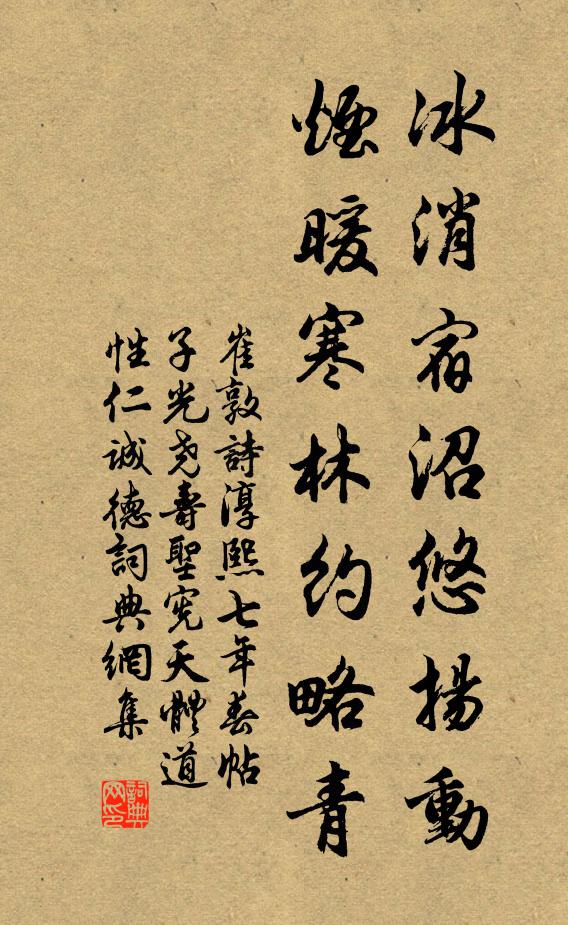 冰消宿沼悠揚動
煙暖寒林約略青
崔敦詩淳熙七年春帖
子光堯壽聖憲天體道
性仁誠德詞典網集
詞典网印